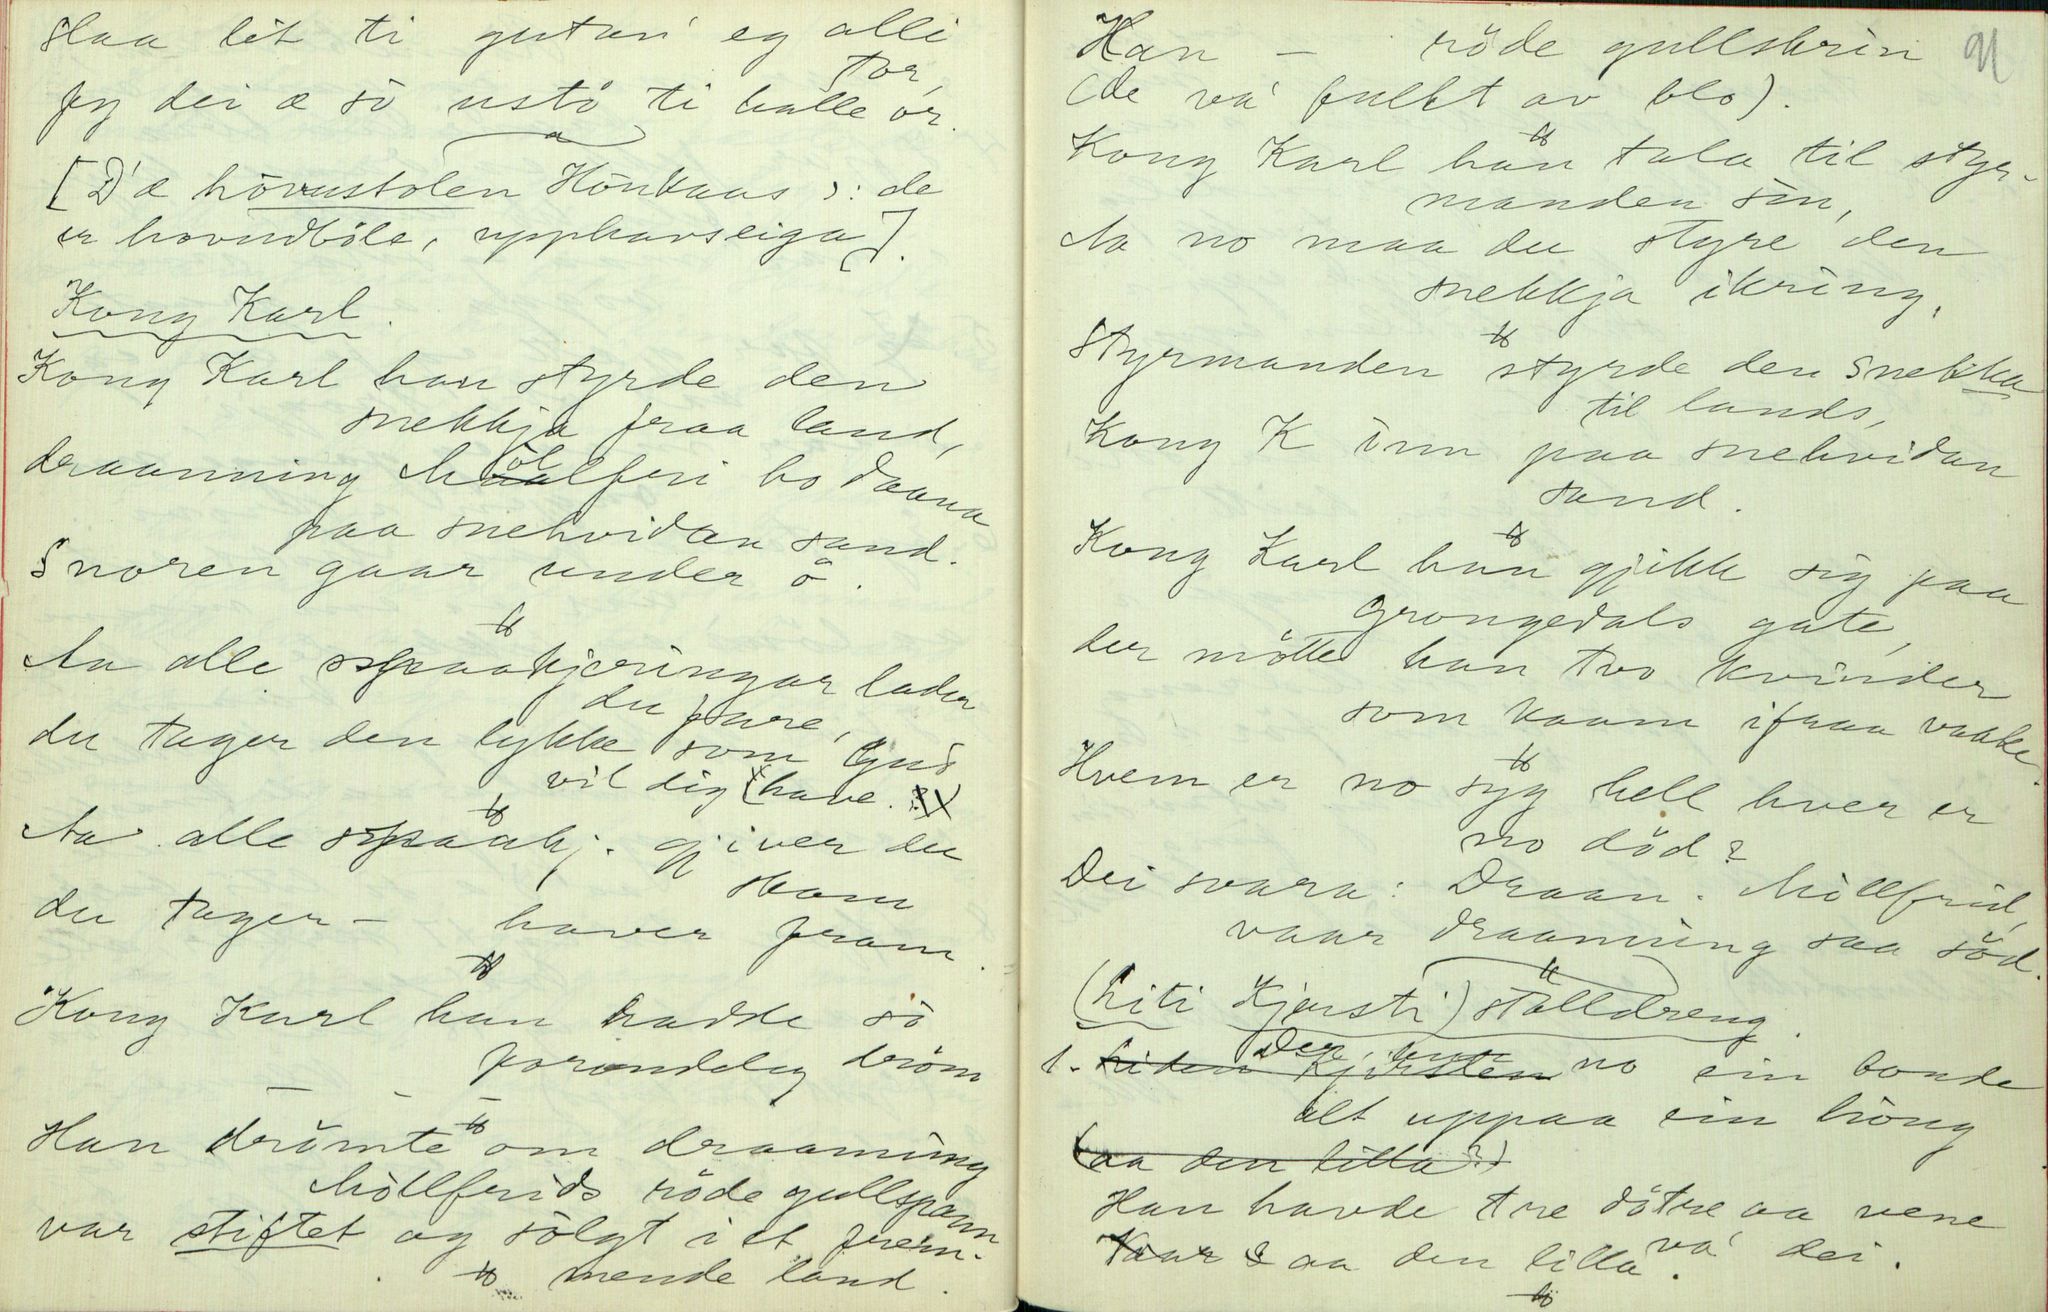 Slaa lit ti gutan' eg alli
tor,
fyy dei æ so ustö' ti halle or.
[D'æ hövustolen Hönkaas ɔ: de
er hovudböle, upphavseiga].
Kong Karl.
Kong Karl han styrde den
snekkja fraa land,
draanning Mölfri ho daana
paa snehvidan sand.
Snoren gaar under ö.
Aa alle spaakjeringar lader
du fare,
du tager den lykke som Gud
vil dig have.
Aa alle spaakj. gjiver du
skam
du tager – haver fram.
Kong Karl han hadde so
forondeleg dröm
Han drömte om draanning
Möllfrids röde gullspann
var stiftet og sölgt i et frem-
mende land.
Han – röde gullskrin 91
(de va' fullt av blo).
Kong Karl han tala til styr-
manden sin,
Aa no maa du styre den
snekkja ikring,
Styrmanden styrde den snekka
til lands,
Kong K inn paa snehvidan
sand.
Kong Karl han gjikk sig paa
Grongedals gate,
der mötte han tvo kvinder
som kaam ifraa vaake.
Hvem er no syg hell hver er
no död?
Dei svara: Draan. Möllfrid,
vaar draanning saa söd.
(Liti Kjersti) stalldreng.
1. Liden Kjersten no ein bonde
alt uppaa ein haug
(aa den lilla)
Han havde tre dötre aa vene
va' dei.
aa den lilla.